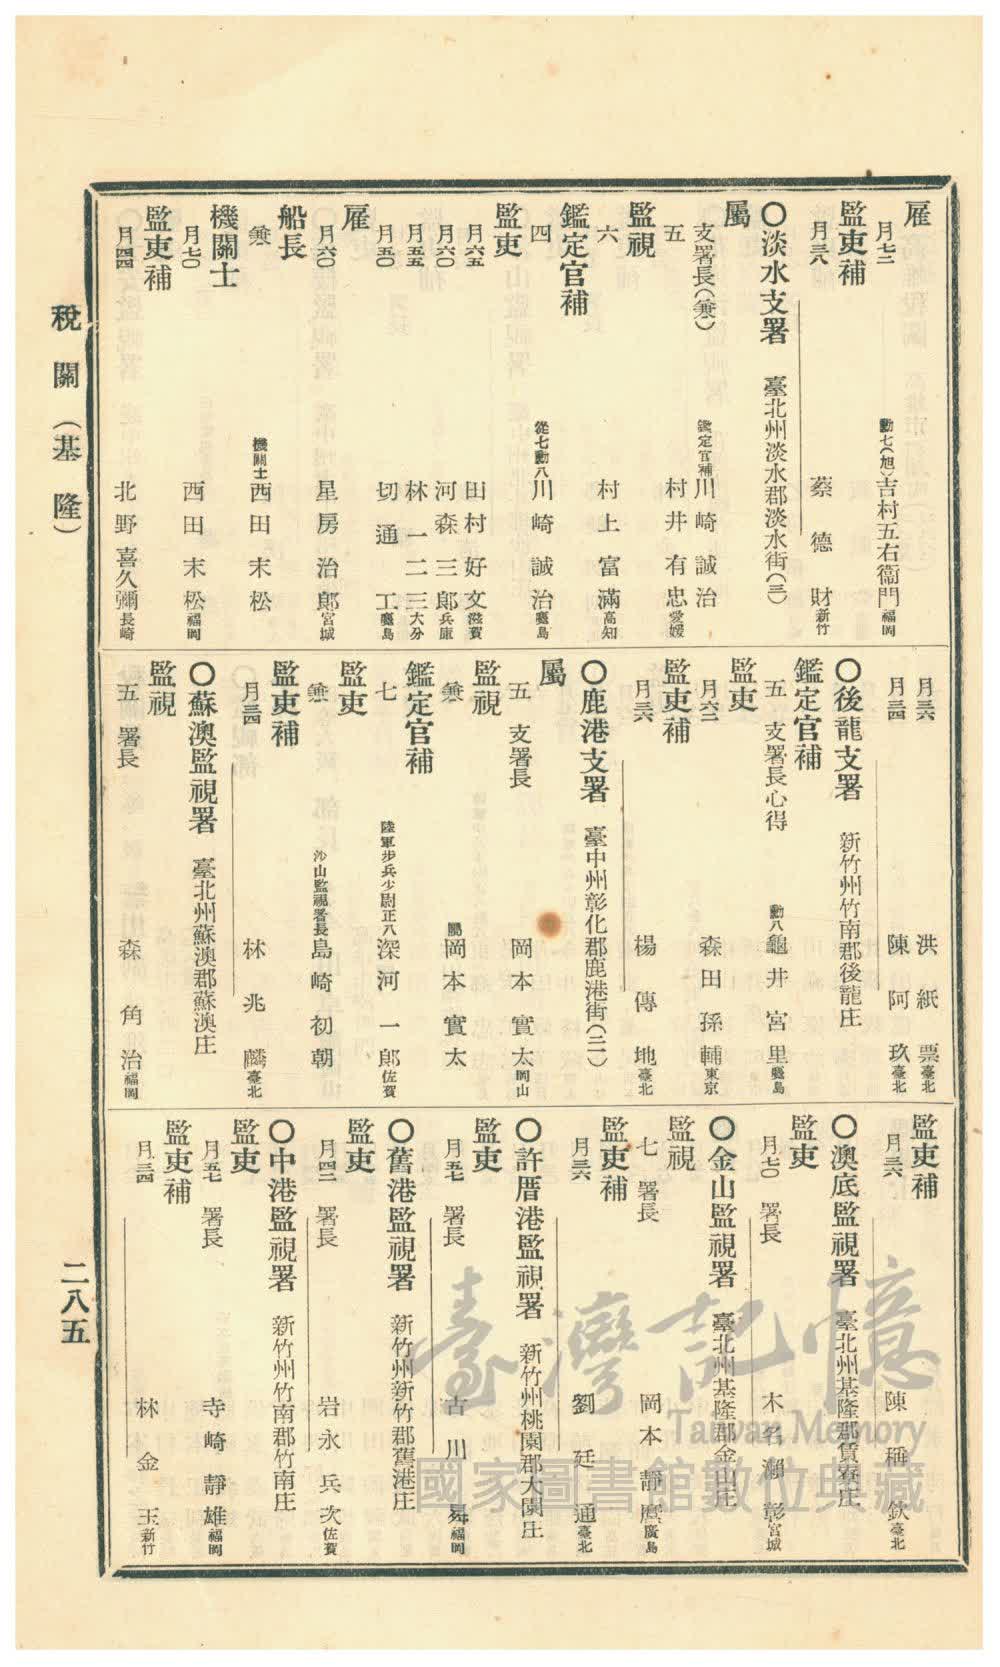 雇
月七二 勳七(旭)吉村五右衞門福岡
監吏補
月三八 蔡德財新竹
〇淡水支署 臺北州淡水郡淡水街(三)
屬
支署長(兼) 鑑定官補川崎誠治
五 村井有忠愛媛
監視
六 村上富滿高知
鑑定官補
四 從七勳八川崎誠治鹿兒島
監吏
月六五 田村好文滋賀
月六〇 河森三郎兵庫
月五五 林一二三大分
月五〇 切通工鹿兒島
雇
月六〇 星房治郎宮城
船長
兼 機關士西田末松
機關士
月七〇 西田末松福岡
監吏補
月四四 北野喜久彌長崎
月三六 洪紙票臺北
月三四 陳阿玖臺北
〇後龍支署 新竹州竹南郡後龍庄
鑑定官補
五 支署長心得 勳八龜井宮里鹿兒島
監吏
月六二 森田孫輔東京
監吏補
月三六 楊傳地臺北
〇鹿港支署 臺中州彰化郡鹿港街(二)
屬
五 支署長 岡本實太岡山
監視
兼 屬岡本實太
鑑定官補
七 陸軍步兵少尉正八深河一郎佐賀
監吏
兼 沙山監視署長島崎初朝
監吏補
月三四 林兆麟臺北
〇蘇澳監視署 臺北州蘇澳郡蘇澳庄
監視
五 署長 森角治福岡
監吏補
月三六 陳稱欽臺北
〇澳底監視署 臺北州基隆郡貢寮庄
監吏
月七〇 署長 木名瀨彰宮城
〇金山監視署 臺北州基隆郡金山庄
監視
七 署長 岡本靜廣島
監吏補
月三六 劉廷通臺北
〇許厝港監視署 新竹州桃園郡大園庄
監吏
月五七 署長 古川舞福岡
〇舊港監視署 新竹州新竹郡舊港庄
監吏
月四二 署長 岩永兵次佐賀
〇中港監視署 新竹州竹南郡竹南庄
監吏
月五七 署長 寺崎靜雄福岡
監吏補
月三四 林金玉新竹
稅關(基隆)
二八五
臺灣記憶
Taiwan Memory
國家圖書館數位典藏